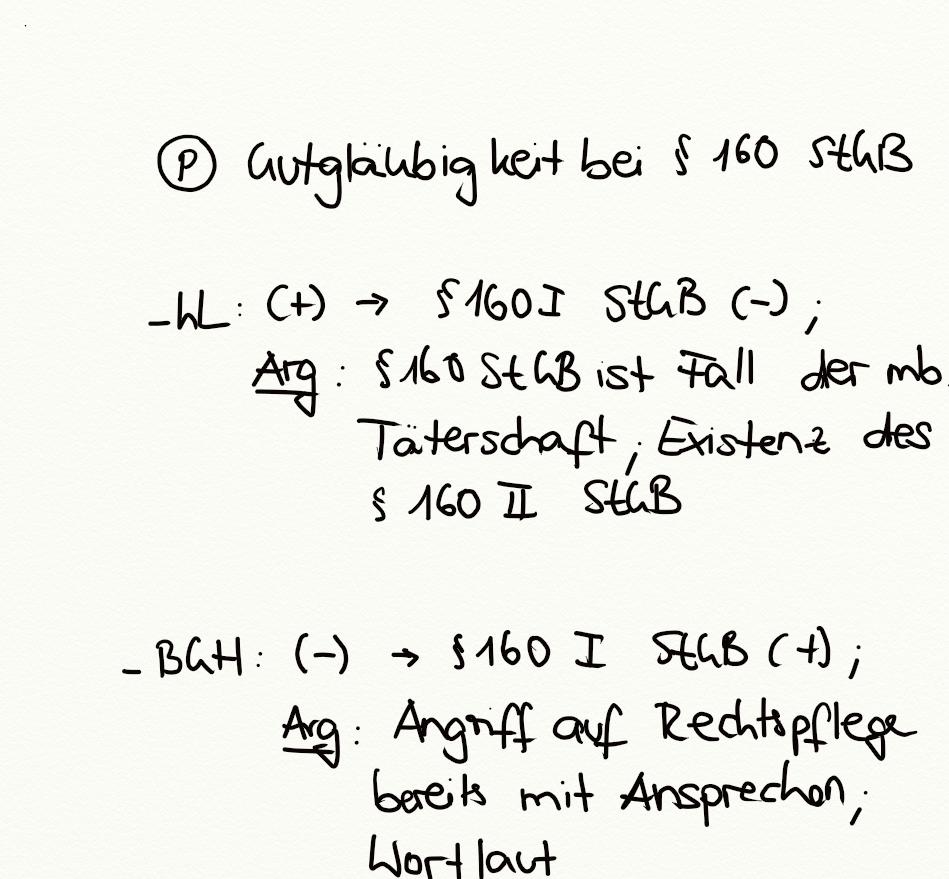 Ⓟ Gutgläubigkeit bei § 160 StGB
- hL: (+) → § 160 I StGB (-);
Arg: § 160 StGB ist Fall der mb.
Täterschaft; Existenz des
§ 160 II StGB
- BGH: (-) → § 160 I StGB (+);
Arg: Angriff auf Rechtspflege
bereits mit Ansprechen;
Wortlaut